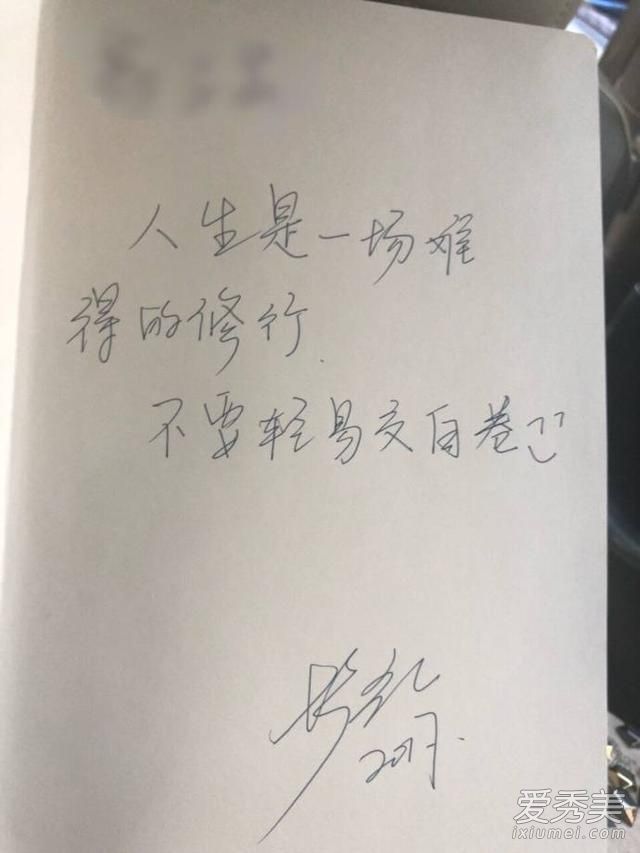 人生是一场难
得的修行.
不要轻易交白卷
2017.
爱秀美
ixiumei.com